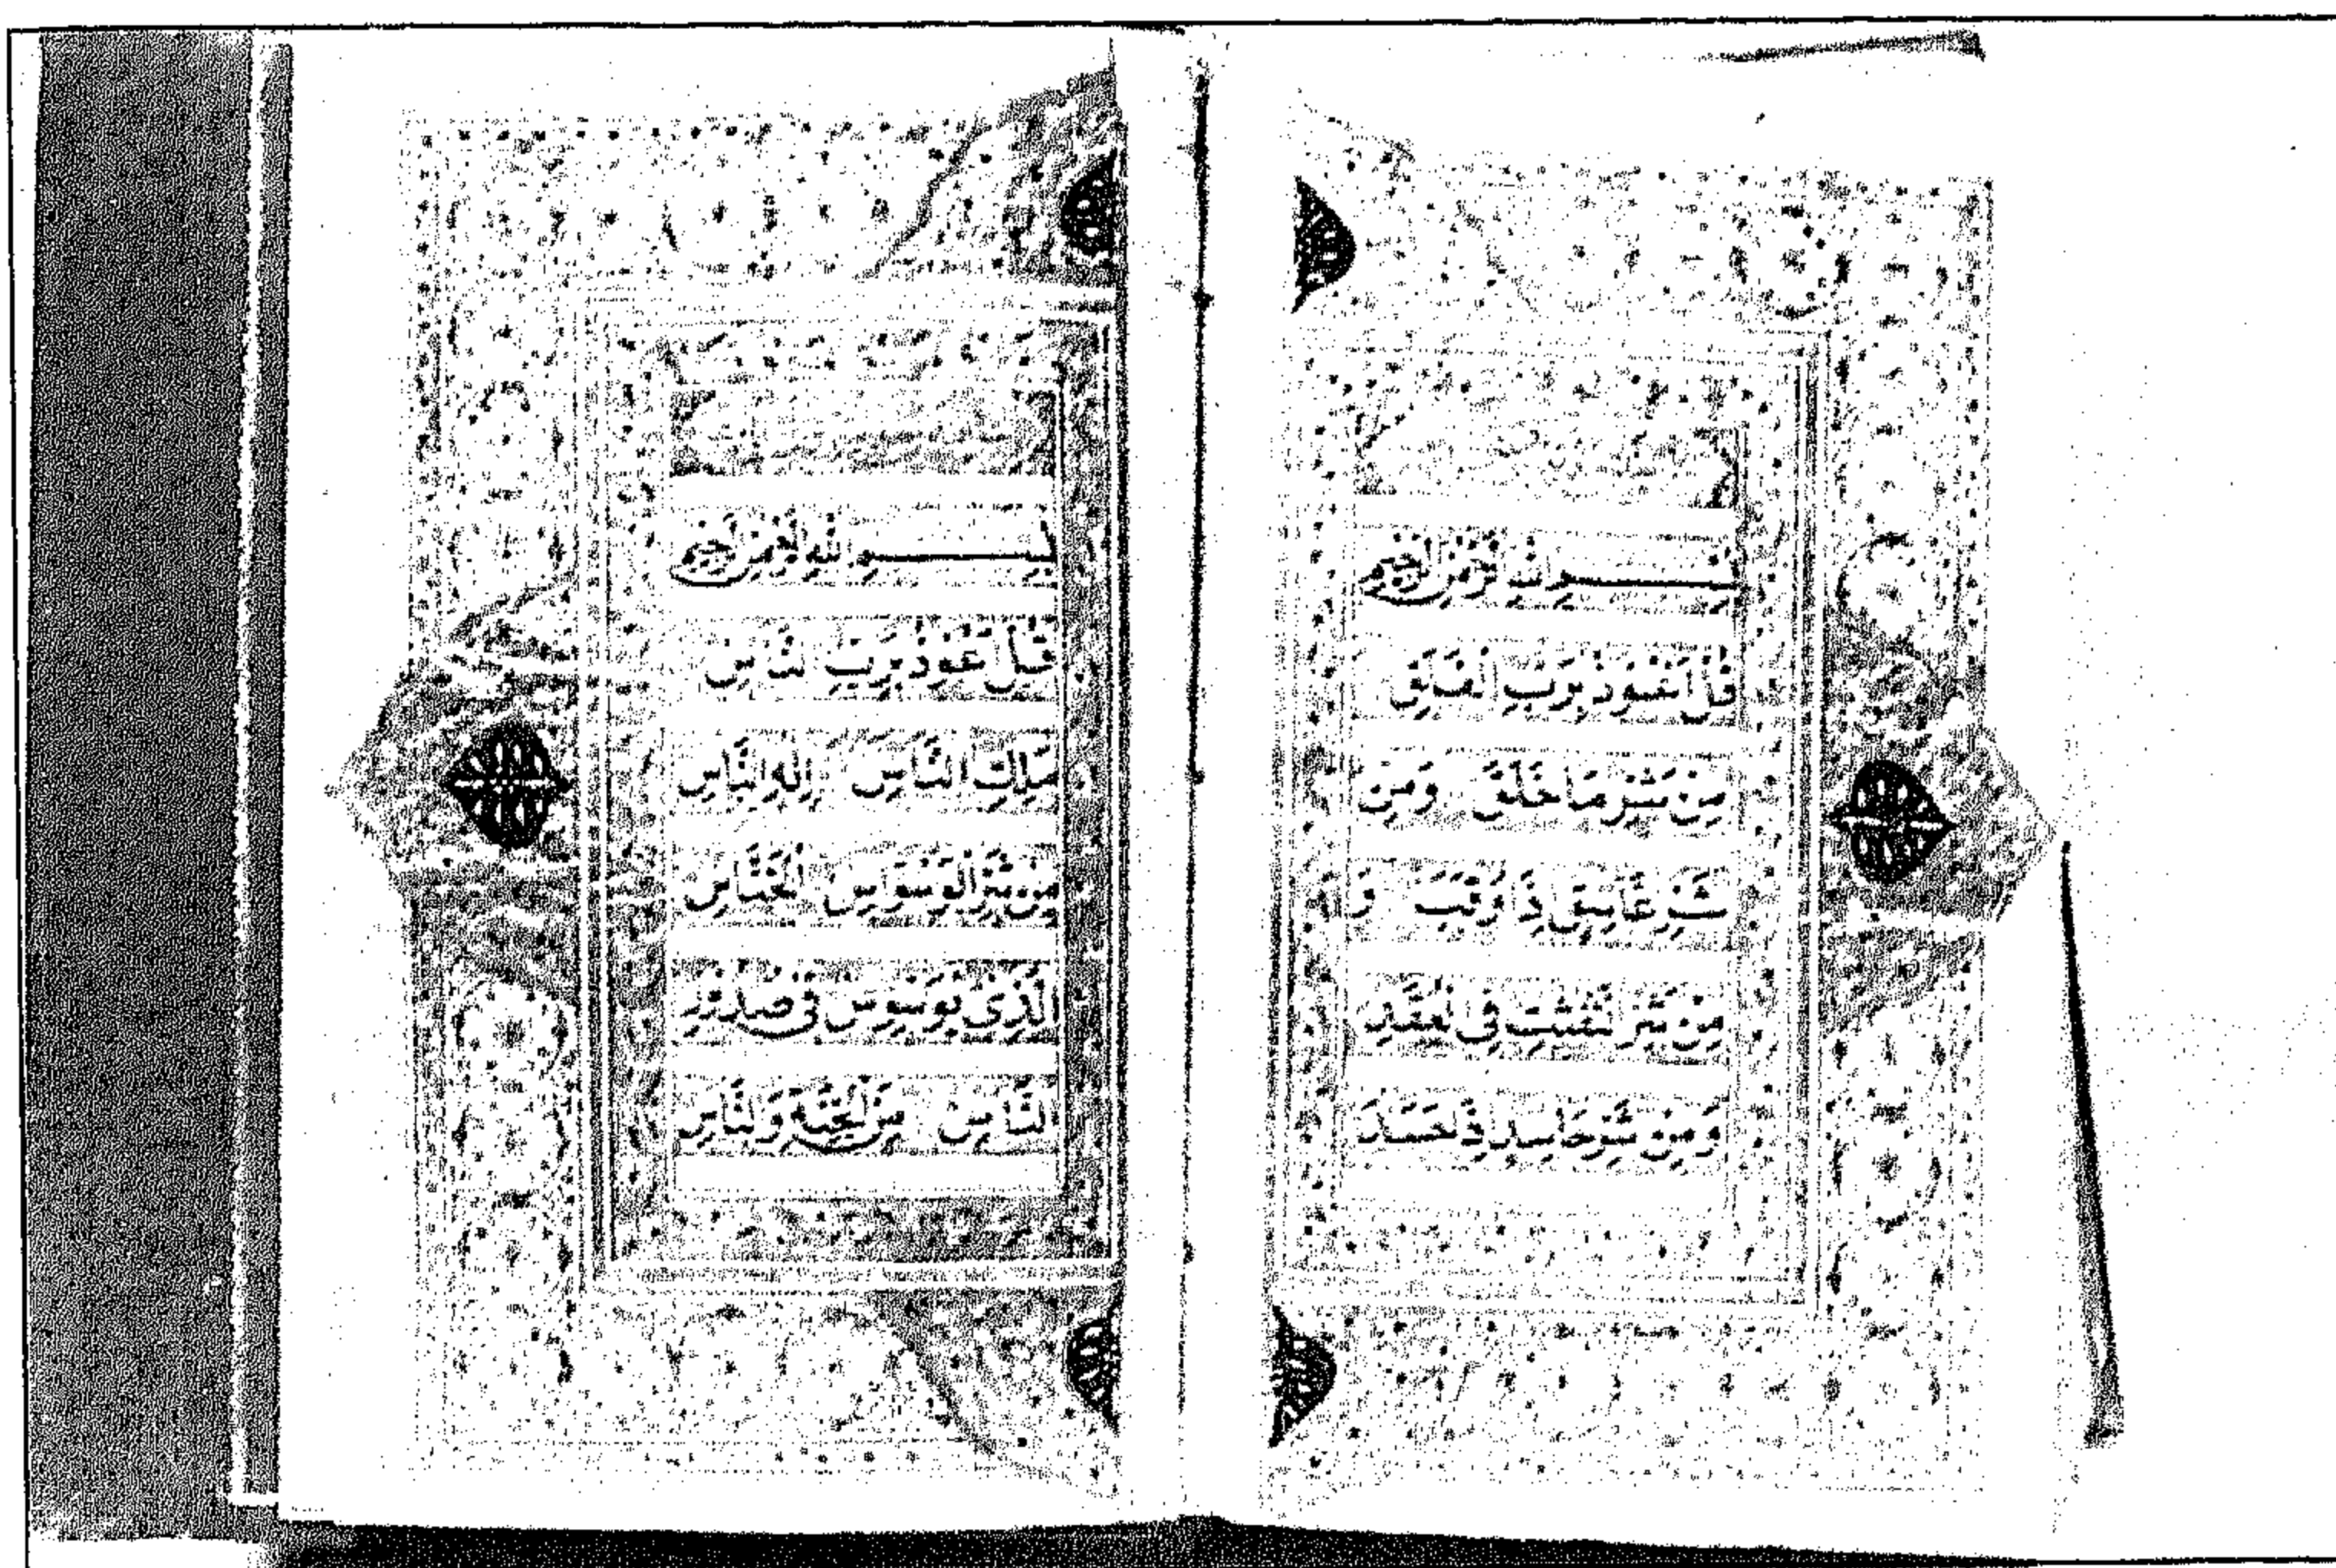 بِسْمِ اللهِ الرَّحْمٰنِ الرَّحِيمِ
قُلْ اَعُوذُ بِرَبِّ الْفَلَقِ
مِنْ شَرِّ مَا خَلَقَ وَمِنْ
شَرِّ غَاسِقٍ اِذَا وَقَبَ وَ
مِنْ شَرِّ النَّفّٰثٰتِ فِى الْعُقَدِ
وَمِنْ شَرِّ حَاسِدٍ اِذَا حَسَدَ
بِسْمِ اللهِ الرَّحْمٰنِ الرَّحِيمِ
قُلْ اَعُوذُ بِرَبِّ النَّاسِ
مَلِكِ النَّاسِ اِلٰهِ النَّاسِ
مِنْ شَرِّ الْوَسْوَاسِ الْخَنَّاسِ
الَّذِى يُوَسْوِسُ فِى صُدُورِ
النَّاسِ مِنَ الْجِنَّةِ وَالنَّاسِ